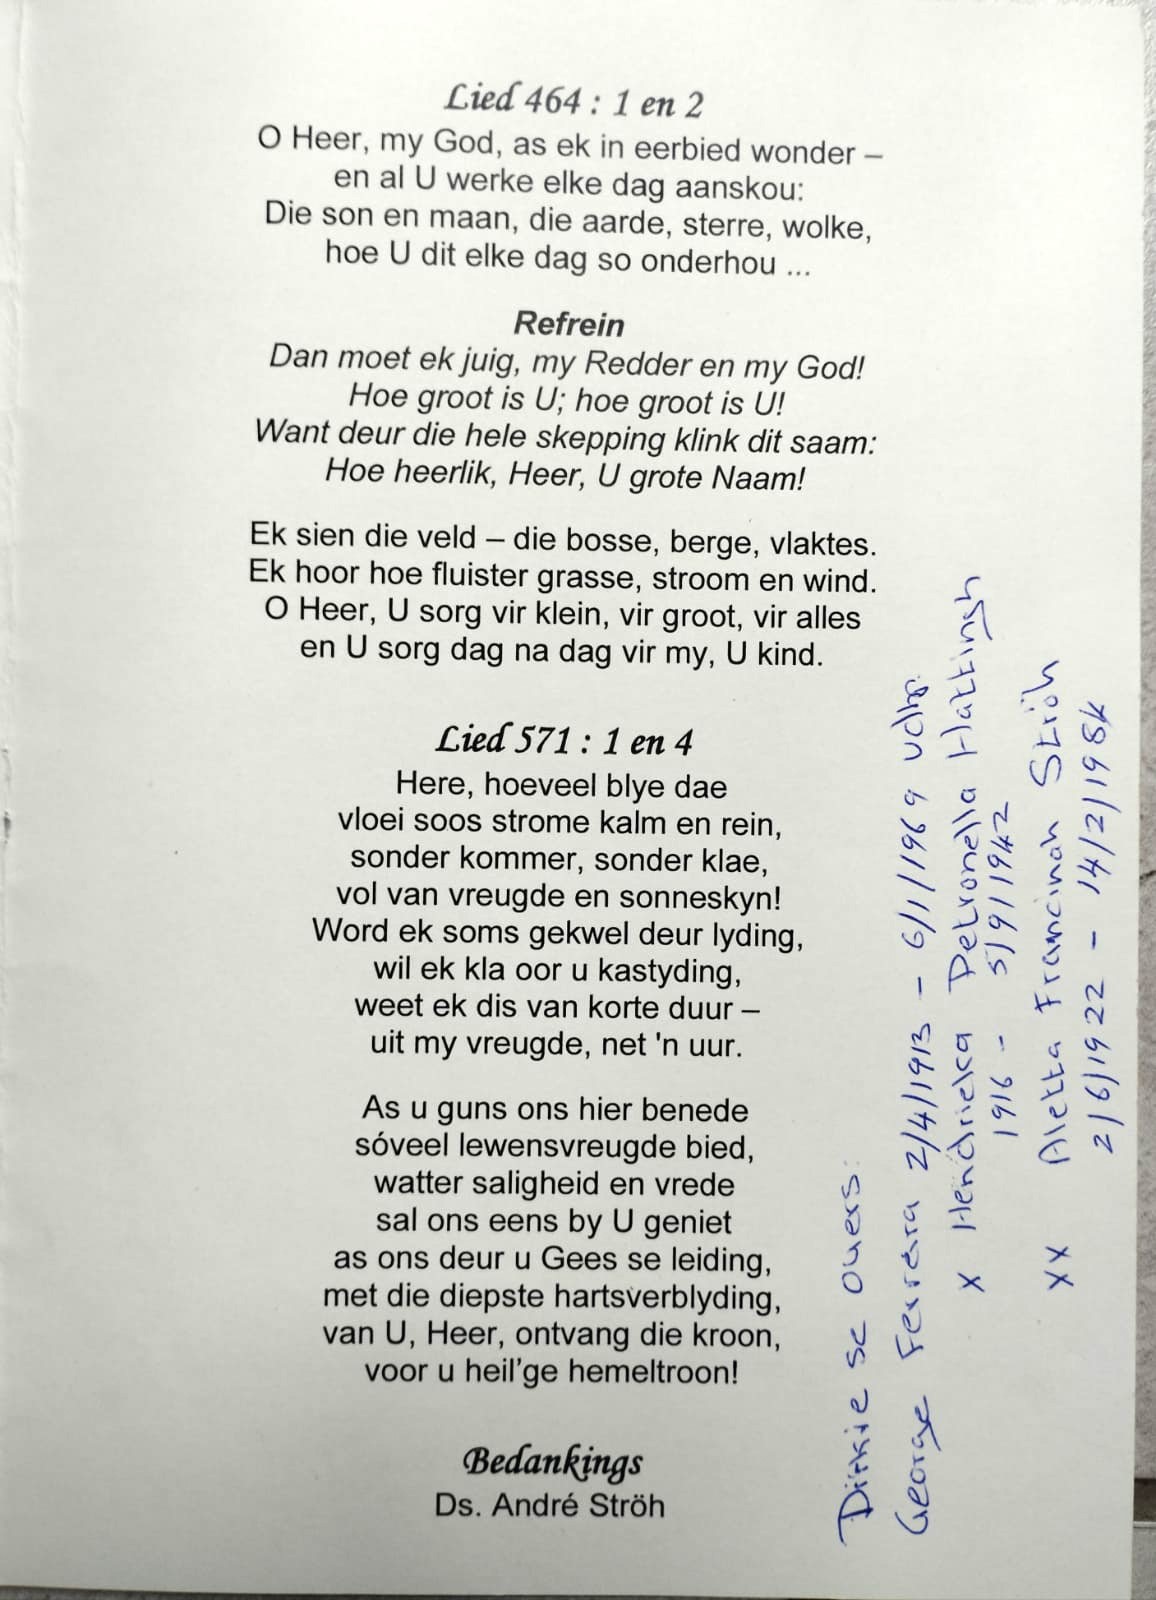 Lied 464 : 1 en 2
O Heer, my God, as ek in eerbied wonder –
en al U werke elke dag aanskou:
Die son en maan, die aarde, sterre, wolke,
hoe U dit elke dag so onderhou ...
Refrein
Dan moet ek juig, my Redder en my God!
Hoe groot is U; hoe groot is U!
Want deur die hele skepping klink dit saam:
Hoe heerlik, Heer, U grote Naam!
Ek sien die veld – die bosse, berge, vlaktes.
Ek hoor hoe fluister grasse, stroom en wind.
O Heer, U sorg vir klein, vir groot, vir alles
en U sorg dag na dag vir my, U kind.
Lied 571 : 1 en 4
Here, hoeveel blye dae
vloei soos strome kalm en rein,
sonder kommer, sonder klae,
vol van vreugde en sonneskyn!
Word ek soms gekwel deur lyding,
wil ek kla oor u kastyding,
weet ek dis van korte duur –
uit my vreugde, net 'n uur.
As u guns ons hier benede
sóveel lewensvreugde bied,
watter saligheid en vrede
sal ons eens by U geniet
as ons deur u Gees se leiding,
met die diepste hartsverblyding,
van U, Heer, ontvang die kroon,
voor u heil'ge hemeltroon!
Bedankings
Ds. André Ströh
Dirkie se ouers:
George Ferrara 2/4/1913 – 6/1/1969
x Hendrieka Petronella Hattingh
1916 – 5/9/1942
xx Aletta Francinah Ströh
2/6/1922 – 14/2/198